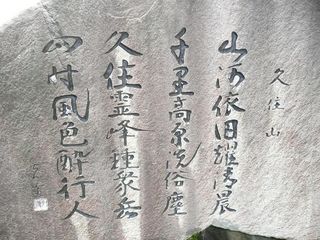 久住山
山河依旧耀清晨
千里高原洗俗塵
久住霊峰種衆岳
四時風色酔行人